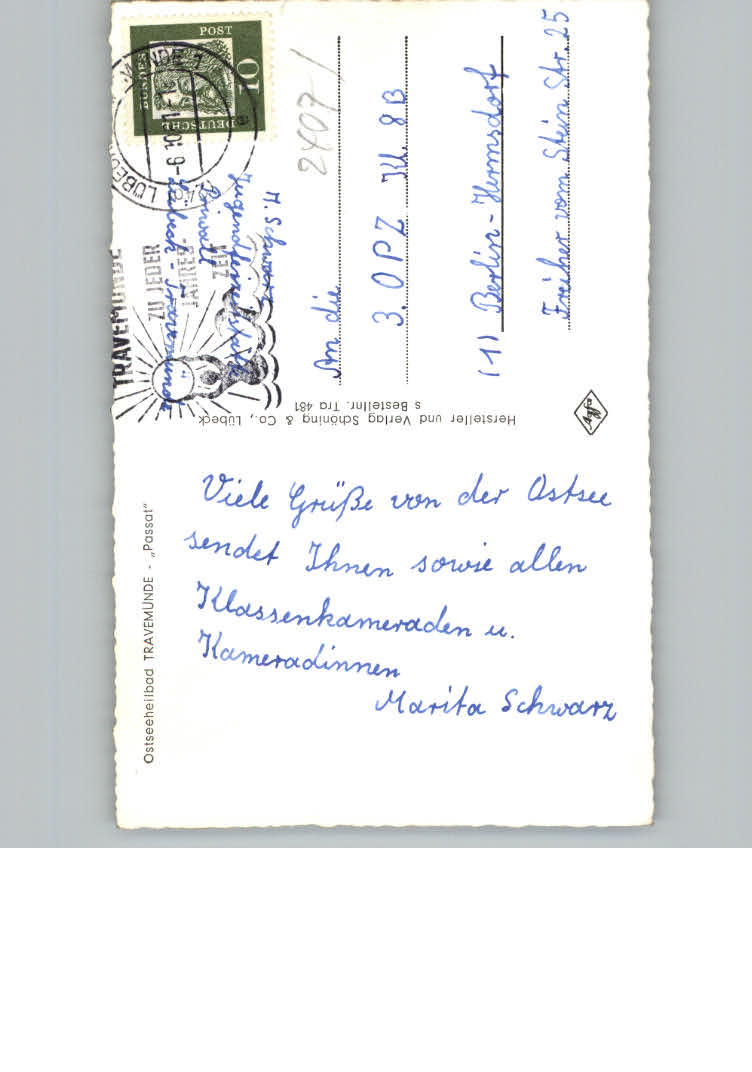 Viele Grüße von der Ostsee
sendet Ihnen sowie allen
Klassenkameraden u.
Kameradinnen
Marita Schwarz
Ostseeheilbad TRAVEMÜNDE - „Passat"
Hersteller und Verlag Schöning & Co., Lübeck
s Bestellnr. Tra 481
Agfa
M. Schwarz
Jugendfreizeitstätte
Priwall
Lübeck - Travemünde
An die
3. OPZ Kl. 8B
(1) Berlin-Hermsdorf
Freiher vom Stein Str. 25
2407/
DEUTSCHE
BUNDES
POST
10
LÜBECK
-6.10.61-12
TRAVEMÜNDE
ZU JEDER
JAHRES-
ZEIT